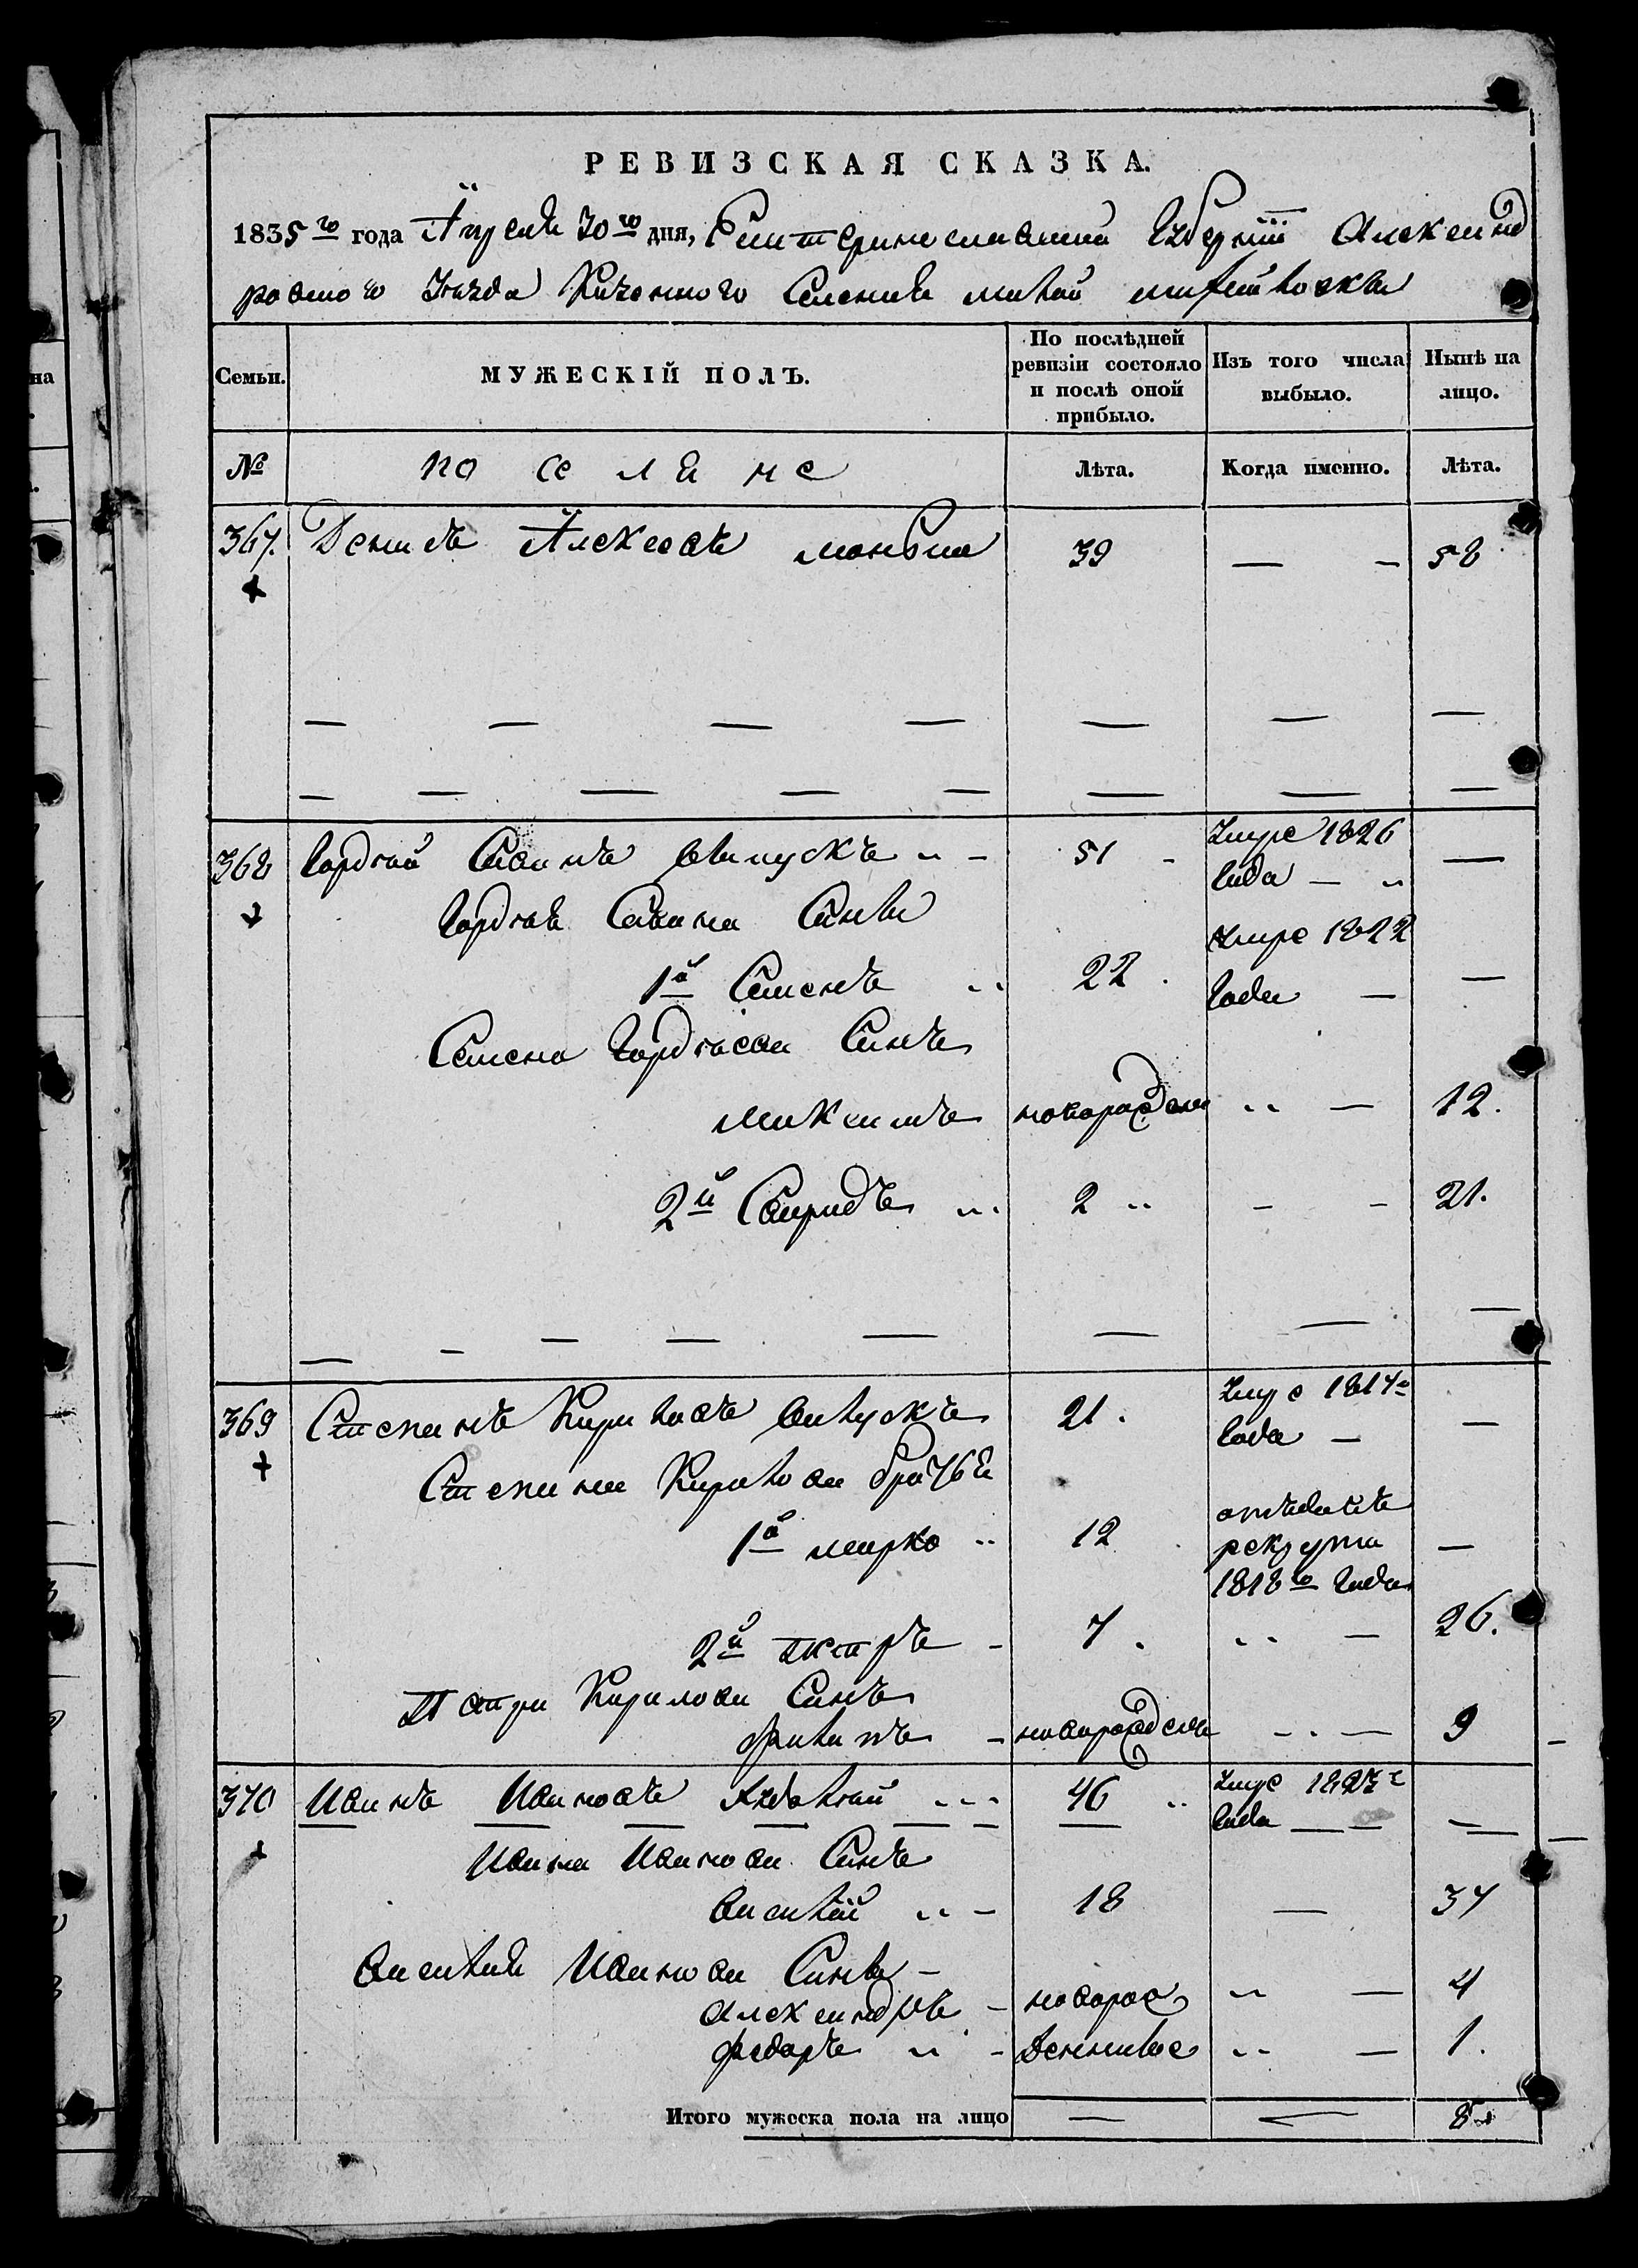 РЕВИЗСКАЯ СКАЗКА.
1835 го года Апреля 30 го дня, Екатеринославской Губернии Александ
ровского Уезда Казенного Селения малой михайловки
Семьи. МУЖЕСКІЙ ПОЛЪ. По послѣдней ревизіи состояло и послѣ оной прибыло. Изъ того числа выбыло. Нынѣ на лицо.
№ поселяне Лѣта. Когда именно. Лѣта.
367. Денисъ Алексеевъ 39 — — 58
368 Гордѣй Савинъ 51 - Умре 1826 года — —
Гордѣя Савина Сыны
1й Семенъ 22. Умре 1822 года — —
Семена Гордѣева Сынъ
максимъ новорожденъ — 12.
2й Свиридъ 2 - - 21.
369 Степанъ Кириловъ 21. Умре 1817 года — —
Степана Кирилова братья
1й марко 12 отъданъ рекрута 1818 го года —
2й петръ - 7. — 26.
Петра Кирилова Сынъ
филипъ - новорожденъ — 9
370 Иванъ Ивановъ 46 Умре 1823 года — —
Ивана Иванова Сынъ
Василий - 18 — 37
Василия Иванова Сыны -
Александръ - новорож — 4
федоръ - денные — 1.
Итого мужеска пола на лицо — — 8